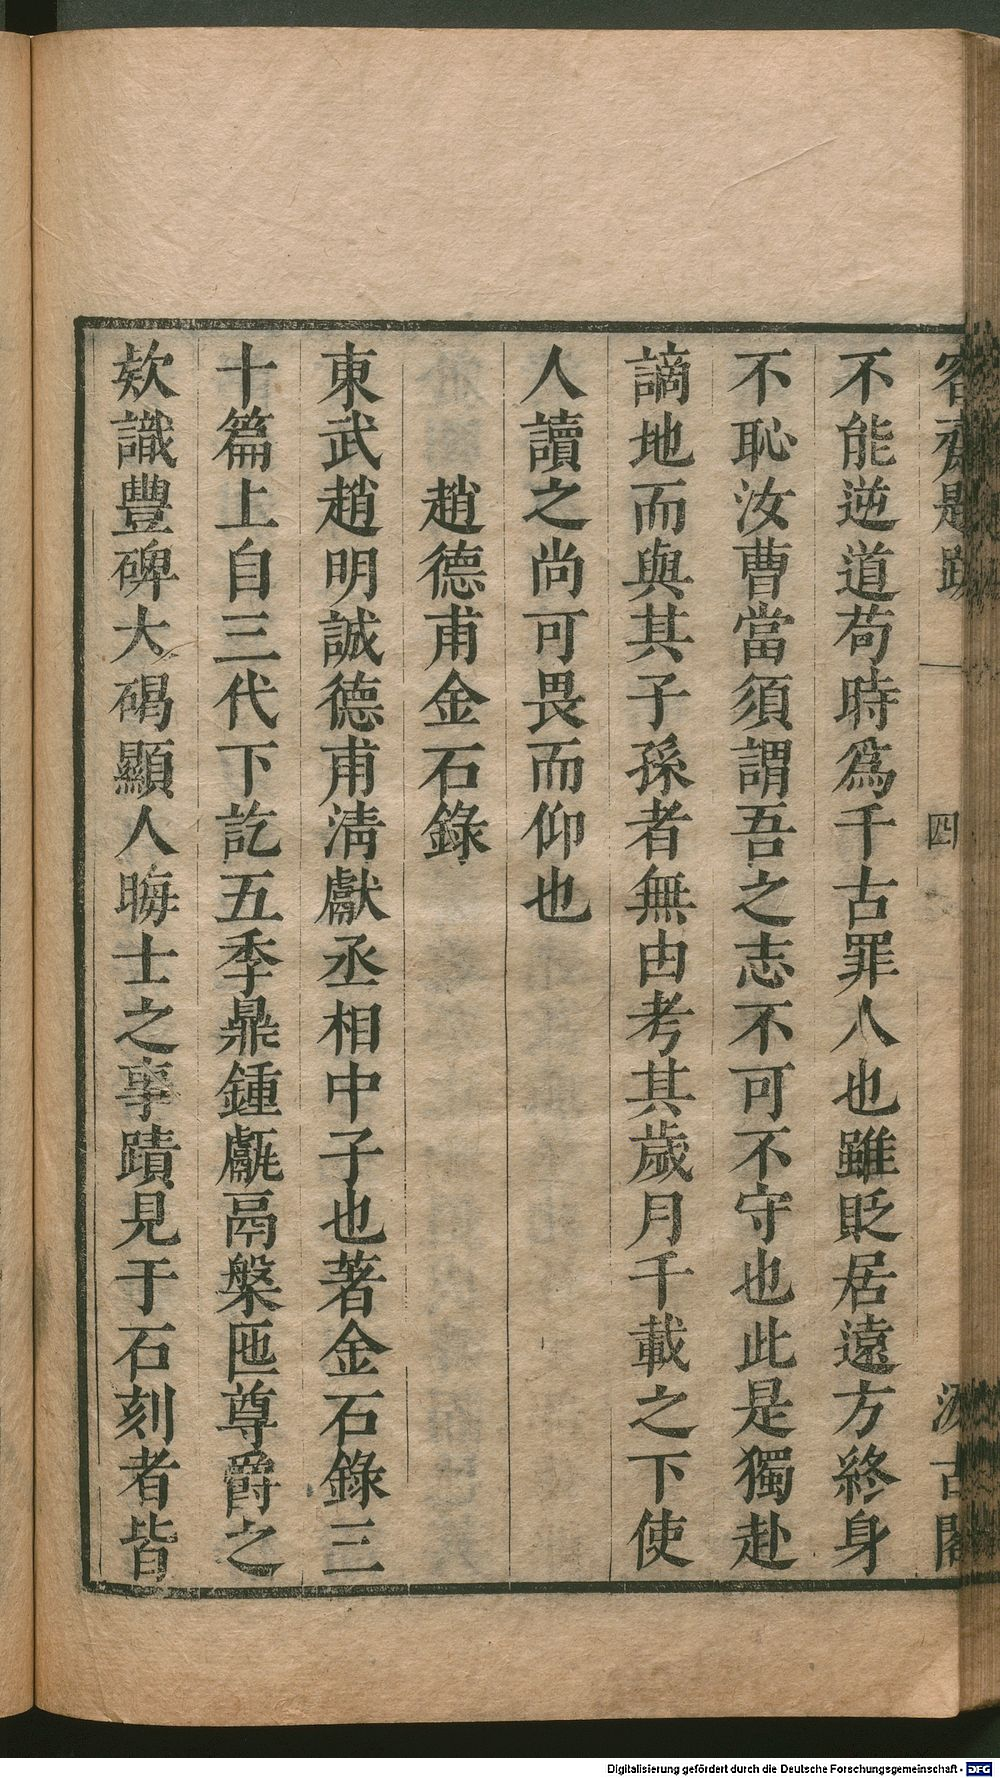 容齋題跋 一 四 汲古閣
不能逆道苟時爲千古罪人也雖貶居遠方終身
不恥汝曹當須謂吾之志不可不守也此是獨赴
謫地而與其子孫者無由考其歲月千載之下使
人讀之尚可畏而仰也
趙德甫金石錄
東武趙明誠德甫淸獻丞相中子也著金石錄三
十篇上自三代下訖五季鼎鍾甗鬲槃匜尊爵之
欵識豐碑大碣顯人晦士之事蹟見于石刻者皆
Digitalisierung gefördert durch die Deutsche Forschungsgemeinschaft - DFG